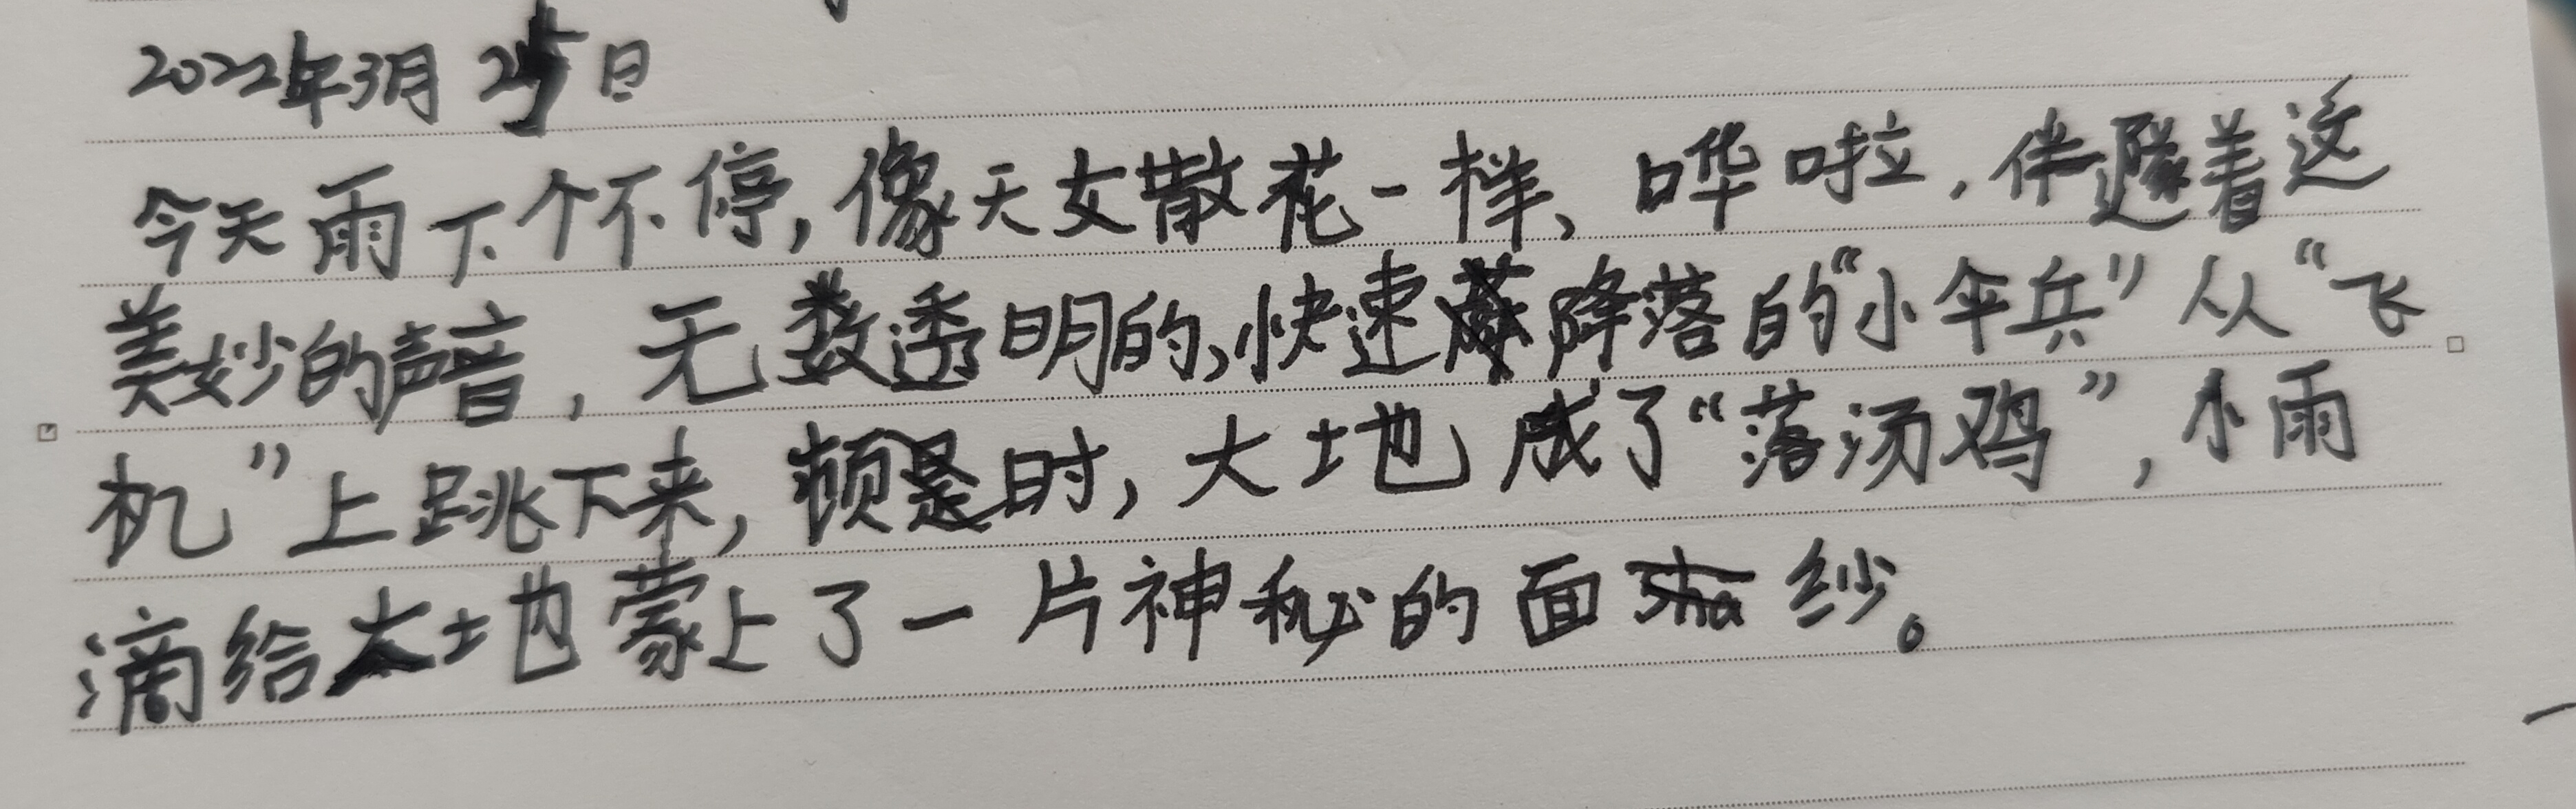 2022年3月25日
今天雨下个不停,像天女散花一样、哗啦,伴隧着这
美妙的声音,无数透明的,快速降落的“小伞兵”从“飞
机”上跳下来,顿是时,大地成了“落汤鸡”,小雨
滴给大地蒙上了一片神秘的面纱。